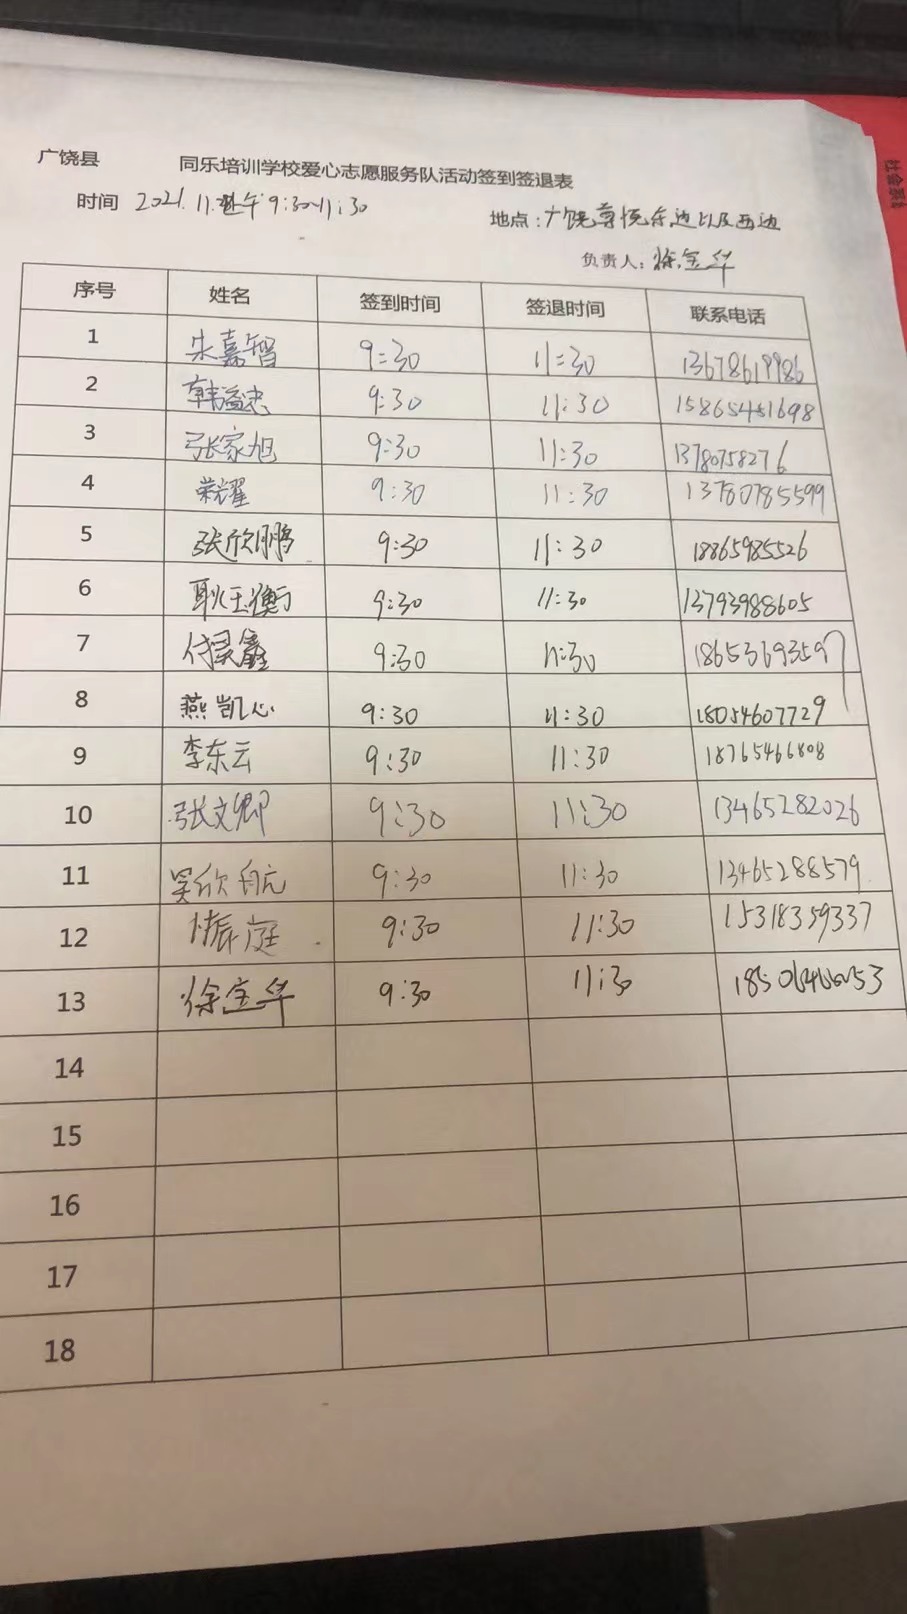 广饶县 同乐培训学校爱心志愿服务队活动签到签退表
时间 2021.11. 上午9:30-11:30 地点:广饶尊悦东边以及西边
负责人:徐宝华
序号 姓名 签到时间 签退时间 联系电话
1 朱嘉智 9:30 11:30 13678619986
2 韩益忠 9:30 11:30 15865451698
3 张家旭 9:30 11:30 13780758276
4 荣耀 9:30 11:30 13780785599
5 张欣鹏 9:30 11:30 18865985526
6 耿玉衡 9:30 11:30 13793988605
7 付昊鑫 9:30 11:30 18653693597
8 燕凯心 9:30 11:30 18054607729
9 李东云 9:30 11:30 18765466808
10 张文卿 9:30 11:30 13465282026
11 吴欣航 9:30 11:30 13465288579
12 付振庭 9:30 11:30 15318359337
13 徐宝华 9:30 11:30
14
15
16
17
18